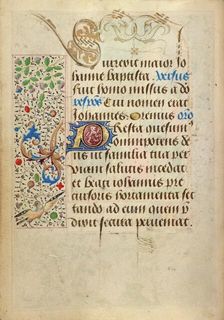 surrexit maior Jo
hanne baptista. Versus
fuit homo missus a deo
Cui nomen erat
Johannes. Oremus oro
Presta quesumus
omnipotens de
us ut familia tua per
viam salutis incedat
et beati iohannis pre
cursoris hortamenta sec
tando ad eum quem p
dixit secura perveniat.